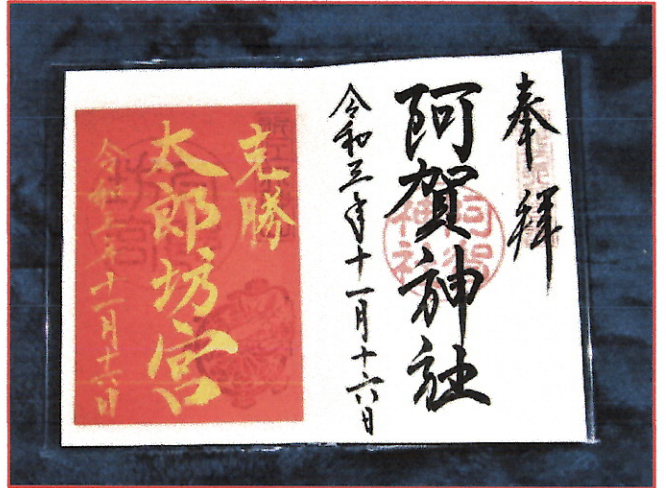 奉拝
阿賀神社
令和三年十一月十六日
克勝
太郎坊宮
令和三年十一月十六日
阿賀神社